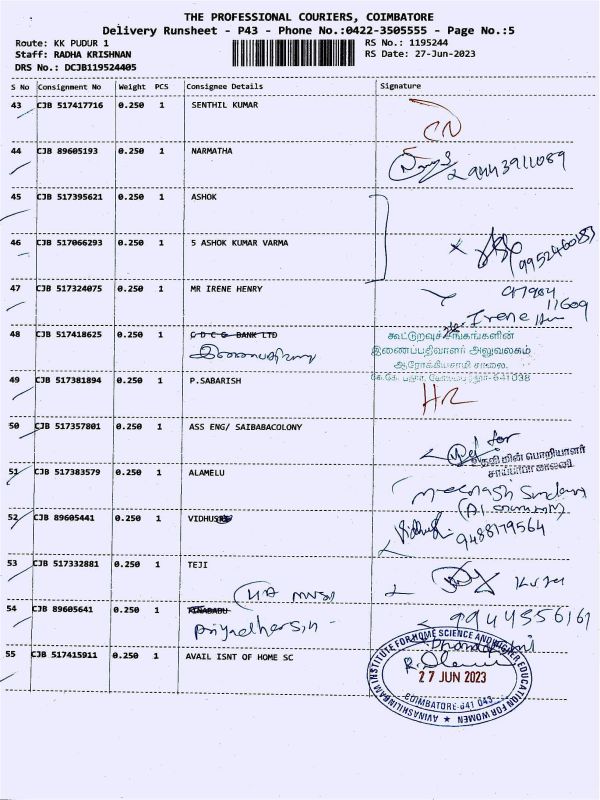 THE PROFESSIONAL COURIERS, COIMBATORE
Delivery Runsheet - P43 - Phone No.:0422-3505555 - Page No.:5
Route: KK PUDUR 1 RS No.: 1195244
Staff: RADHA KRISHNAN RS Date: 27-Jun-2023
DRS No.: DCJB119524405
S No Consignment No Weight PCS Consignee Details Signature
43 CJB 517417716 0.250 1 SENTHIL KUMAR
CN
44 CJB 89605193 0.250 1 NARMATHA
9443911089
45 CJB 517395621 0.250 1 ASHOK
46 CJB 517066293 0.250 1 S ASHOK KUMAR VARMA
47 CJB 517324075 0.250 1 MR IRENE HENRY
11609
Irene
48 CJB 517418625 0.250 1 C D C G BANK LTD
கூட்டுறவுச் சங்கங்களின்
இணைப்பதிவாளர் அலுவலகம்
ஆரோக்கியசாமி சாலை,
641038
49 CJB 517381894 0.250 1 P.SABARISH
HR
50 CJB 517357801 0.250 1 ASS ENG/ SAIBABACOLONY
for
உதவி மின் பொறியாளர்
சாய்பாபா காலனி
51 CJB 517383579 0.250 1 ALAMELU
52 CJB 89605441 0.250 1 VIDHUS
9488179564
53 CJB 517332881 0.250 1 TEJI
54 CJB 89605641 0.250 1
9944556161
55 CJB 517415911 0.250 1 AVAIL ISNT OF HOME SC
AVINASHILINGAM INSTITUTE FOR HOME SCIENCE AND HIGHER EDUCATION FOR WOMEN
27 JUN 2023
COIMBATORE-641 043